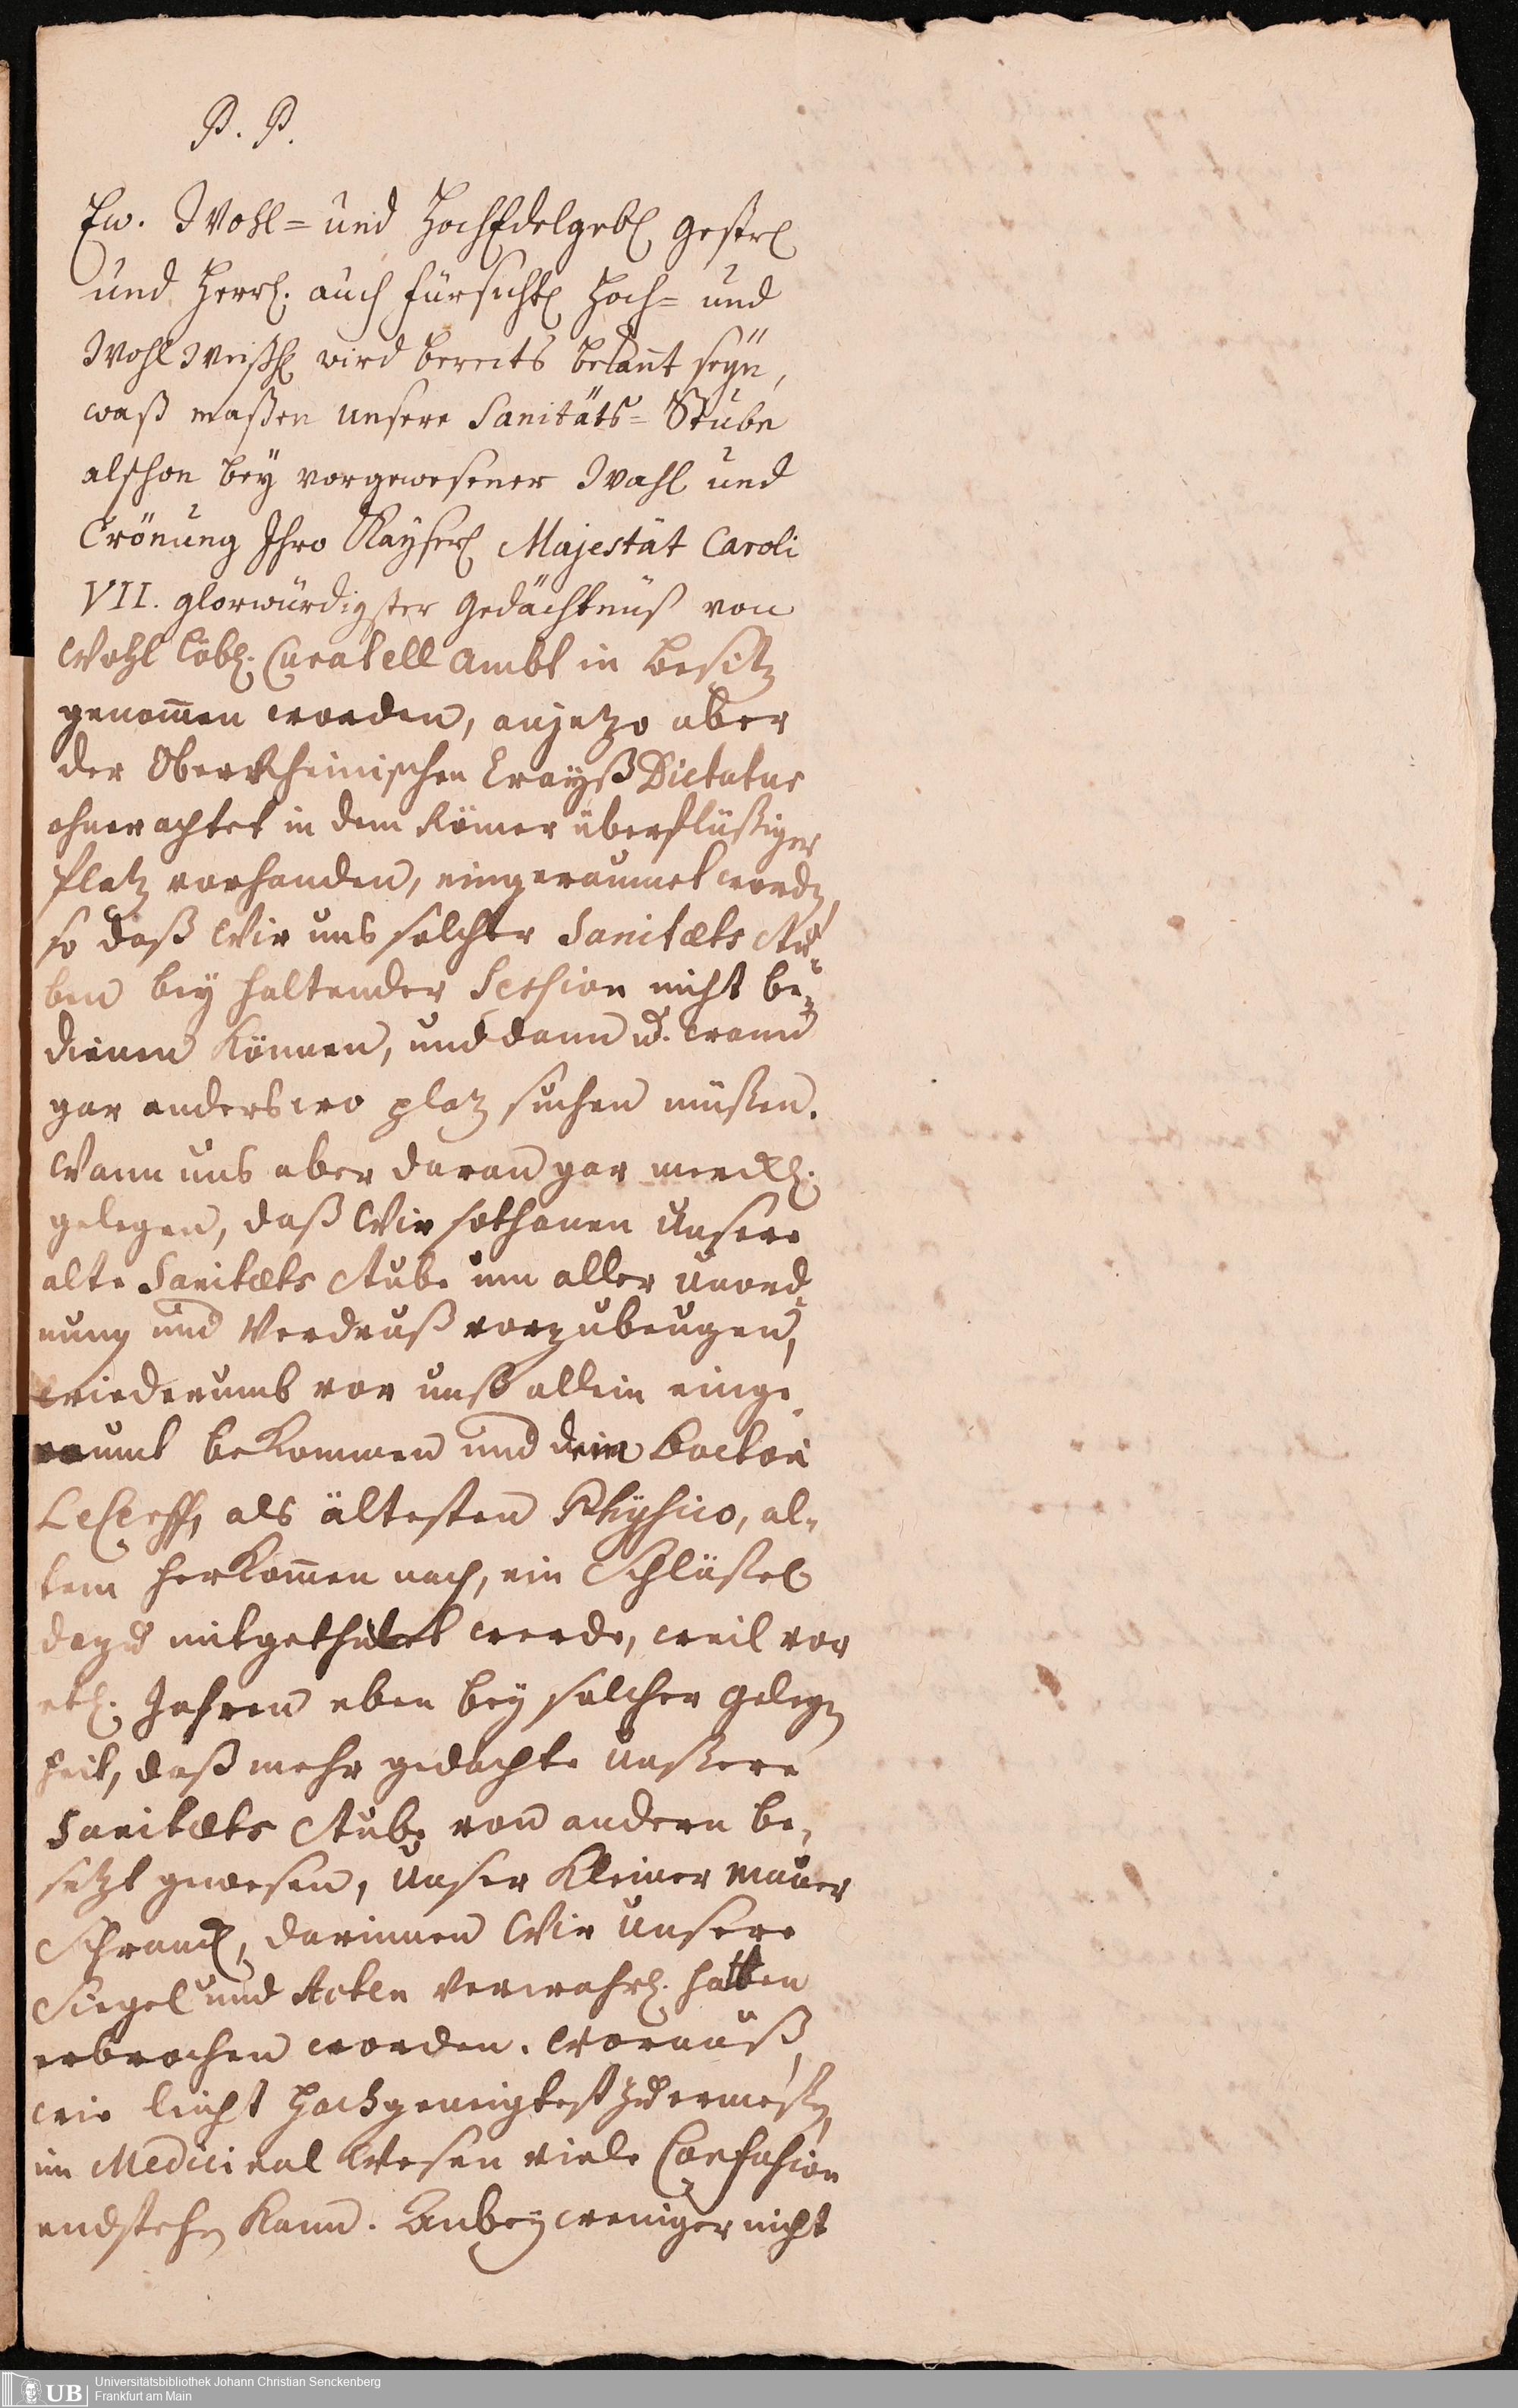 P. P.
Ew. Wohl= und HochEdelgebl gestrl
und Herrl. auch fürsichtl Hoch= und
WohlWeißhl wird bereits bekañt seÿn,
waß maßen unsere Sanitäts= Stube
alschon beÿ vorgewesener Wahl und
Crönung Ihro Kayserl Majestät Caroli
VII. glorwürdigster Gedächtnuß von
Wohl Löbl. Curatell Ambt in Besitz
genom̄en worden, anjetzo aber
der OberRheinischen Crayß Dictatur
ohnerachtet in dem Römer überflüßiger
Platz vorhanden, eingeraumet word,
so daß Wir uns solcher Sanitæts Stu=
ben beÿ haltender Session nicht be=
dienen können, und dann u. wann
gar anderswo platz suchen müßen.
Wann uns aber daran gar merckl.
gelegen, daß Wir sothanen unsere
alte Sanitæts Stube um aller unord=
nung und Verdruß vorzubeugen,
wiederumb vor unß allein einge=
raumt bekommen und dem Doctori
LeCerff, als ältesten Physico, al=
tem herkom̄en nach, ein Schlüßel
dazu mitgetheilet werde, weil vor
etl. Jahren eben beÿ solcher gelegen
heit, daß mehr gedachte unßere
Sanitæts Stube von andern be=
setzt gewesen, unser kleiner mauer
Schranck, darinnen Wir unsere
Siegel und Acten verwahrl. hatten
erbrochen worden. Woraus,
wie leicht Hochgeneigtest zu ermeßen,
im Medicinal Wesen viele Confusion
endstehen kann. Anbeÿ weniger nicht
UB Universitätsbibliothek Johann Christian Senckenberg
Frankfurt am Main